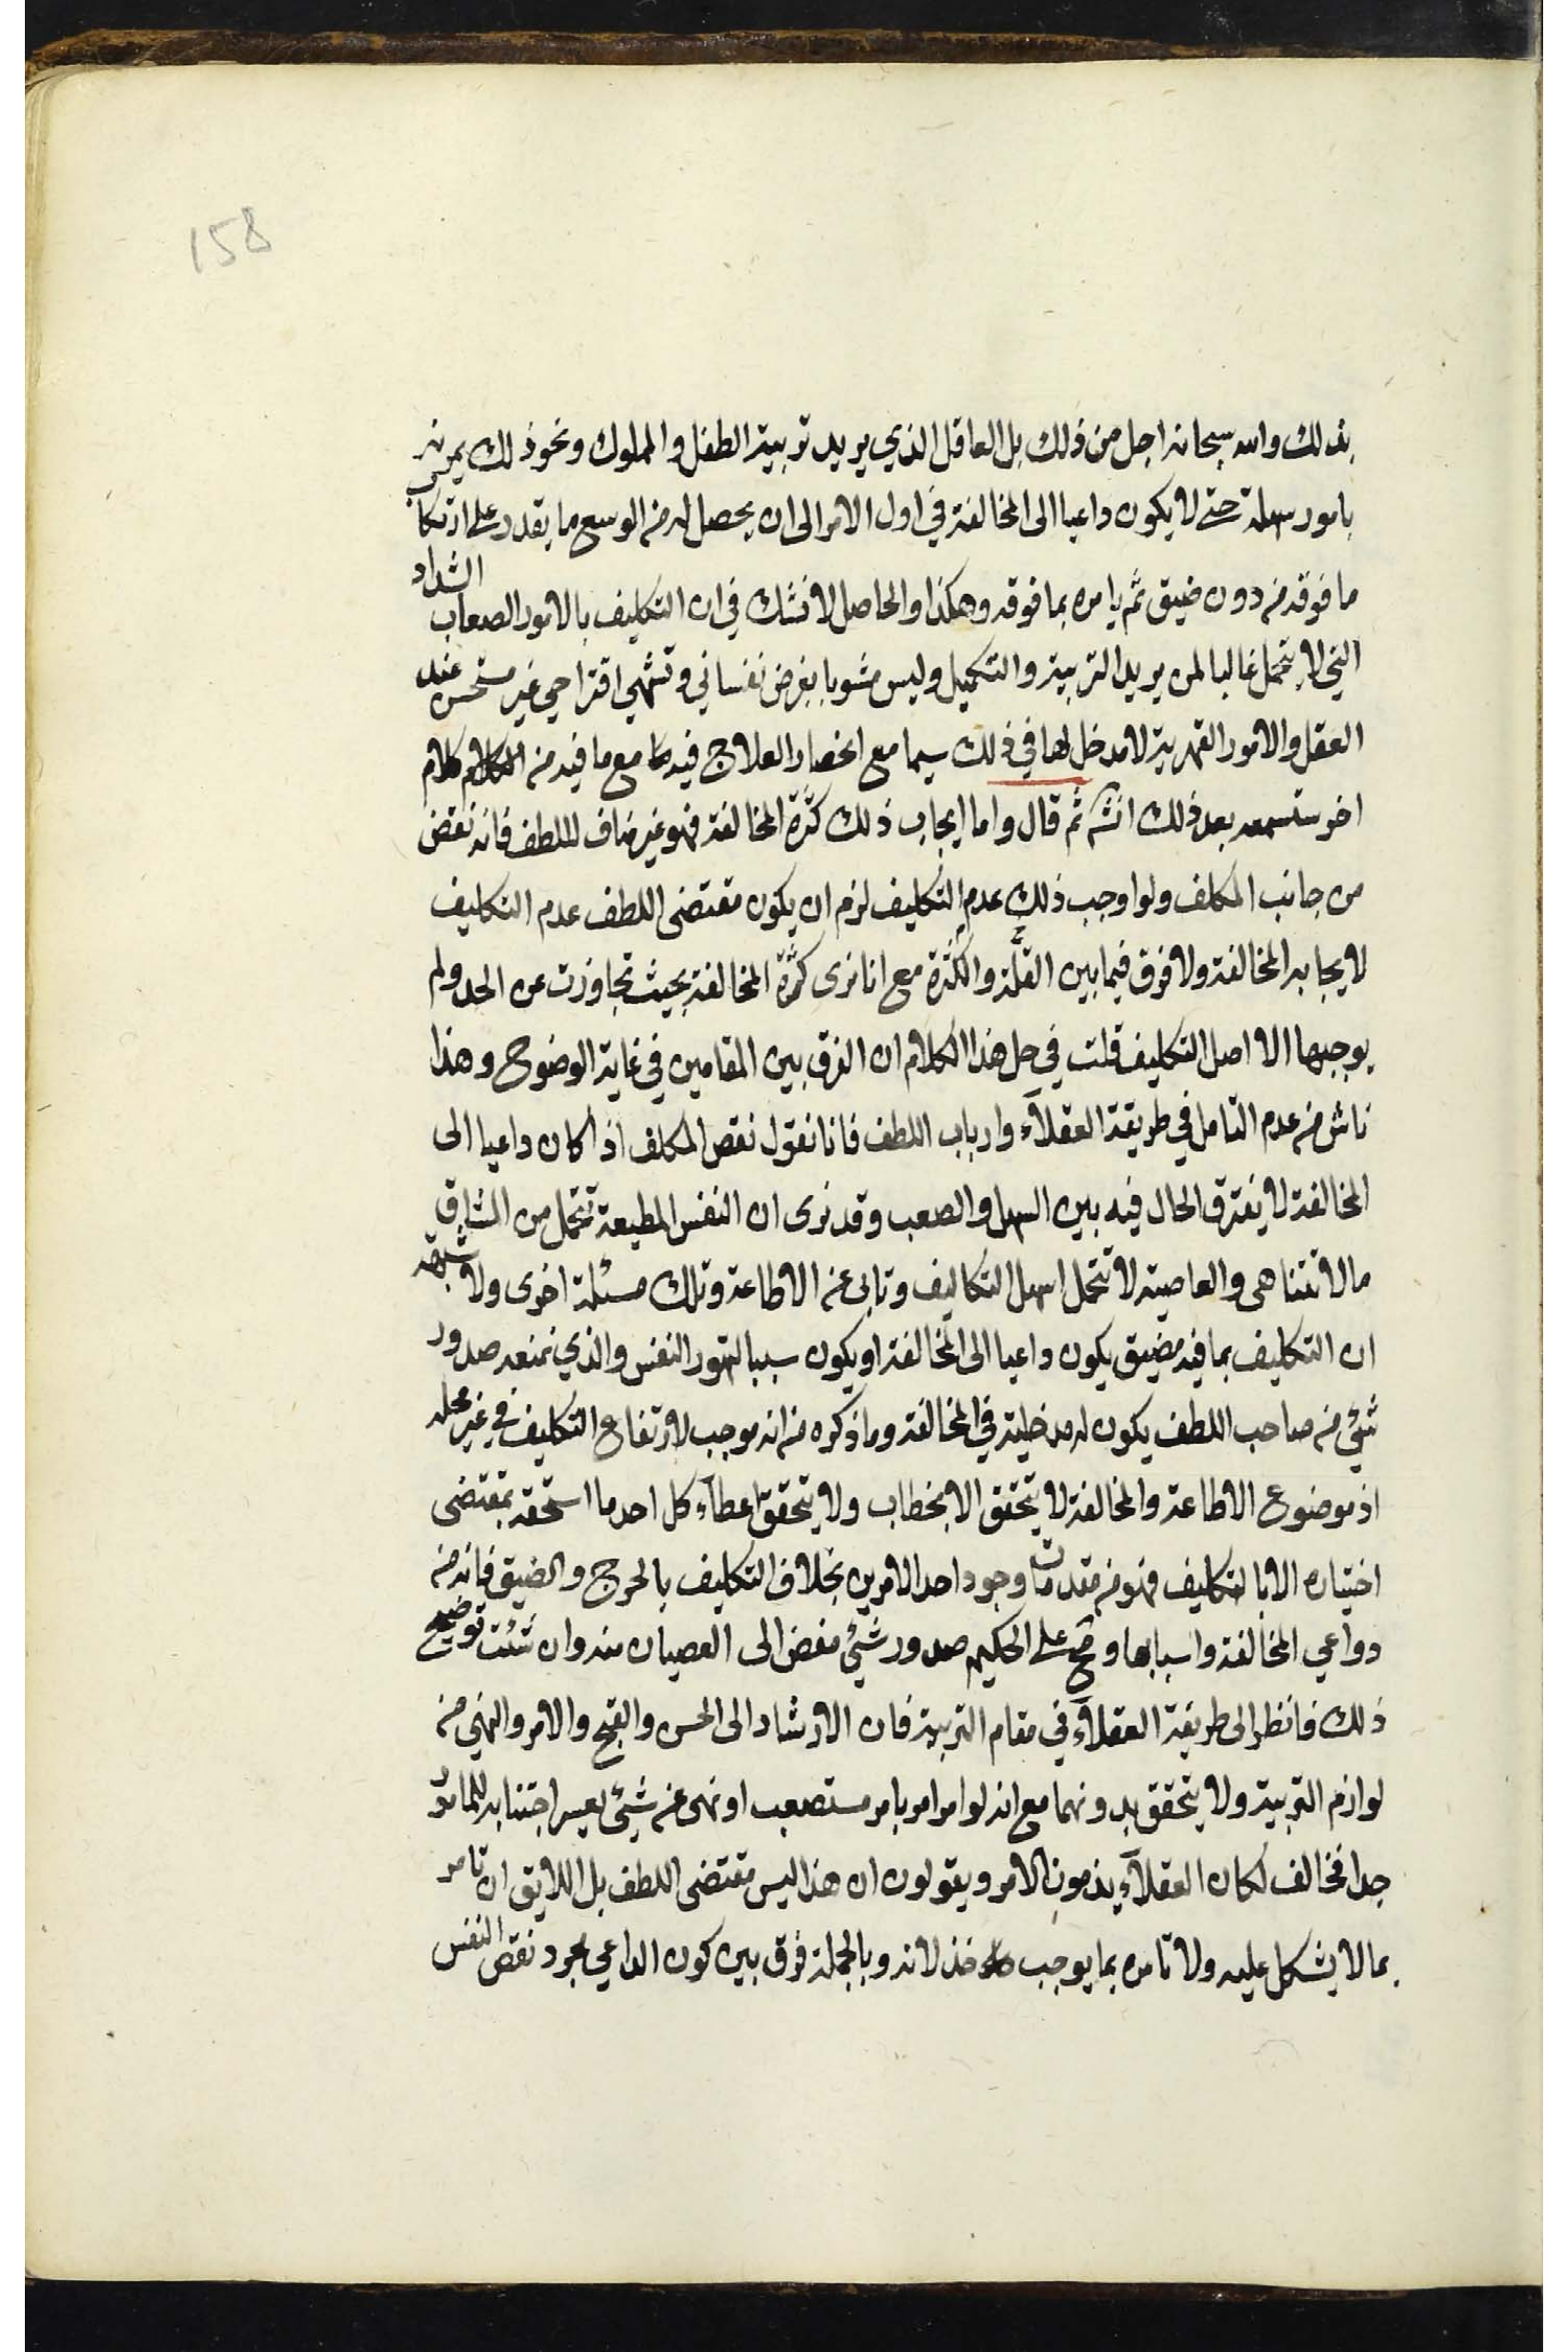 158
بذلك والله سبحانه اجل من ذلك بل العاقل الذي يريد تربية الطفل والمملوك ونحو ذلك يمرنه
بامور سهلة حتى لا يكون داعيا الى المخالفة في اول الامر الى ان يحصل له من الوسع ما يقدر على ارتكاب
ما فوقه من دون ضيق ثم يامره بما فوقه وهكذا والحاصل لا نشك في ان التكليف بالامور الصعاب الشداد
التي لا يتحمل غالبا لمن يريد التربية والتكميل وليس مشوبا بغرض نفساني وتشهي اقتراحي غير مستحسن عند
العقل والامور القهرية لا مدخل لها في ذلك سيما مع انحصار العلاج فيه مع ما فيه من الكلام كلام
اخر ستسمعه بعد ذلك انش ثم قال واما ايجاب ذلك كثرة المخالفة فهو غير مناف للطف فانه نقض
من جانب المكلف ولو اوجب ذلك عدم التكليف لزم ان يكون مقتضى اللطف عدم التكليف
لايجابه المخالفة ولا فرق فيما بين القلّة والكثرة مع انا نرى كثرة المخالفة بحيث تجاوزت عن الحد ولم
يوجبها الا اصل التكليف قلت في حل هذا الكلام ان الفرق بين المقامين في غاية الوضوح وهذا
ناش من عدم التامل في طريقة العقلآء وارباب اللطف فانا نقول نقص المكلف اذا كان داعيا الى
المخالفة لا يفترق الحال فيه بين السهل والصعب وقد نرى ان النفس المطيعة تتحمل من المشاق
ما لا تتناهى والعاصية لا تتحمل اسهل التكاليف وتابى عن الاطاعة وتلك مسئلة اخرى ولا شبهة
ان التكليف بما فيه مضيق يكون داعيا الى المخالفة او يكون سببا لتهور النفس والذي نمنعه صدور
شئ من صاحب اللطف يكون له مدخلية في المخالفة وما ذكره من انه موجب لارتفاع التكليف في غير محله
اذ موضوع الاطاعة والمخالفة لا يتحقق الا بخطاب ولا يتحقق اعطآء كل احد ما استحقه بمقتضى
اختياره الا بالتكليف فهو من مقدمات وجود احد الامرين بخلاف التكليف بالحرج والضيق فانه من
دواعي المخالفة واسبابها وقبح على الحكيم صدور شئ مفض الى العصيان منه وان شئت توضيح
ذلك فانظر الى طريقة العقلآء في مقام التربية فان الارشاد الى الحسن والقبح والامر والنهي من
لوازم التربية ولا يتحقق بدونهما مع انه لو امر امر بامر مستصعب او نهى عن شئ يعسر اجتنابه للمامور
جدا فخالف لكان العقلآء يذمون الامر ويقولون ان هذا ليس مقتضى اللطف بل اللايق ان تامر
بما لا يشكل عليه ولا تامره بما يوجب خذلانه وبالجملة فرق بين كون الداعي مجرد نقص النفس